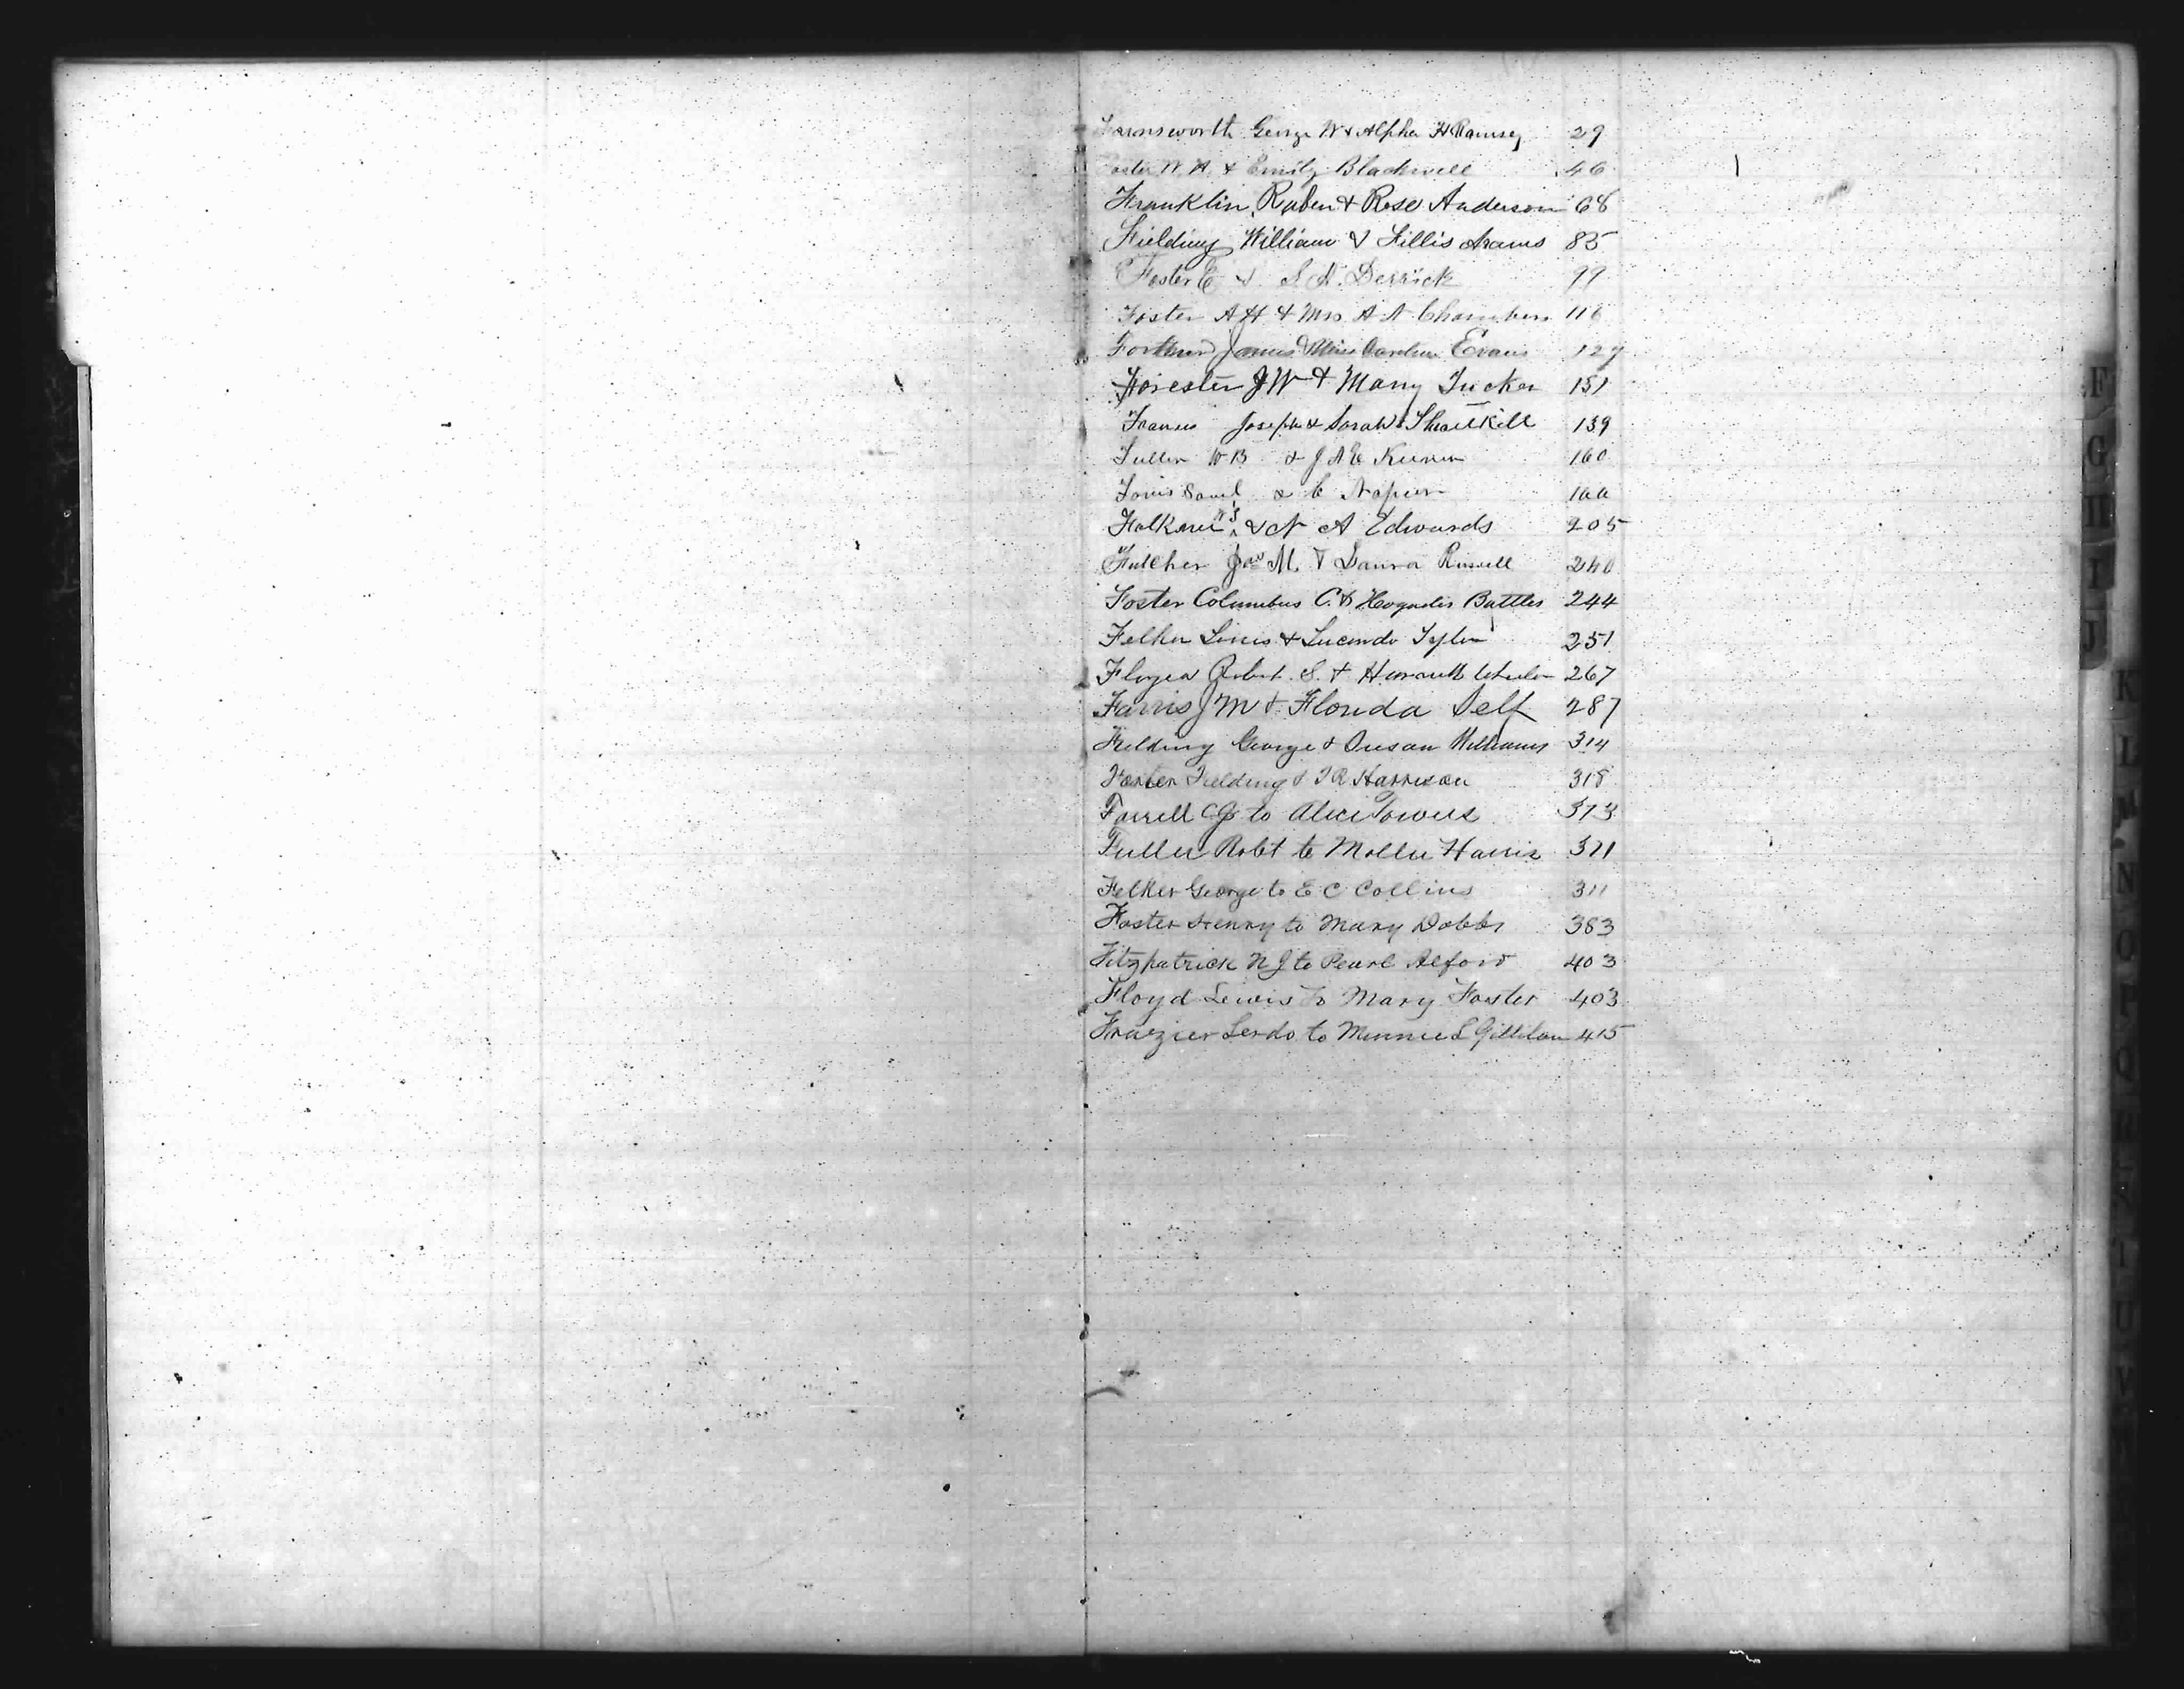 Farnsworth George W & Alpha H Ramsey 29
Foster W. A. & Emily Blackwell 46
Franklin, Ruben & Rose Anderson 68
Fielding William & Fillis Adams 85
Foster E & S. A. Derrick 99
Foster A H & Mrs A A Chambers 116
James & Miss Caroline Evans 127
Forester J W & Mary Tucker 151
Francis Joseph & Sarah 139
Fuller W B & J A E 160
Saml & C Napier 166
Falkner & N A Edwards 205
Fulcher Jas M. & Laura Russell 240
Foster Columbus C. & Battles 244
Felker & Lucinda 251
Robert S. & 267
Farris J M & Florida Self 287
Fielding George & Susan Williams 314
Foster Fielding & Harrison 318
Farrell C J to Alice Towers 373
Fuller Robt to Mollie Harris 371
Felker George to E C Collins 311
Foster Henry to Mary Dobbs 383
Fitzpatrick N J to Pearl Alford 403
Floyd Lewis to Mary Foster 403
Frazier to Minnie L 415
F
G
H
I
J
K
L
M
N
O